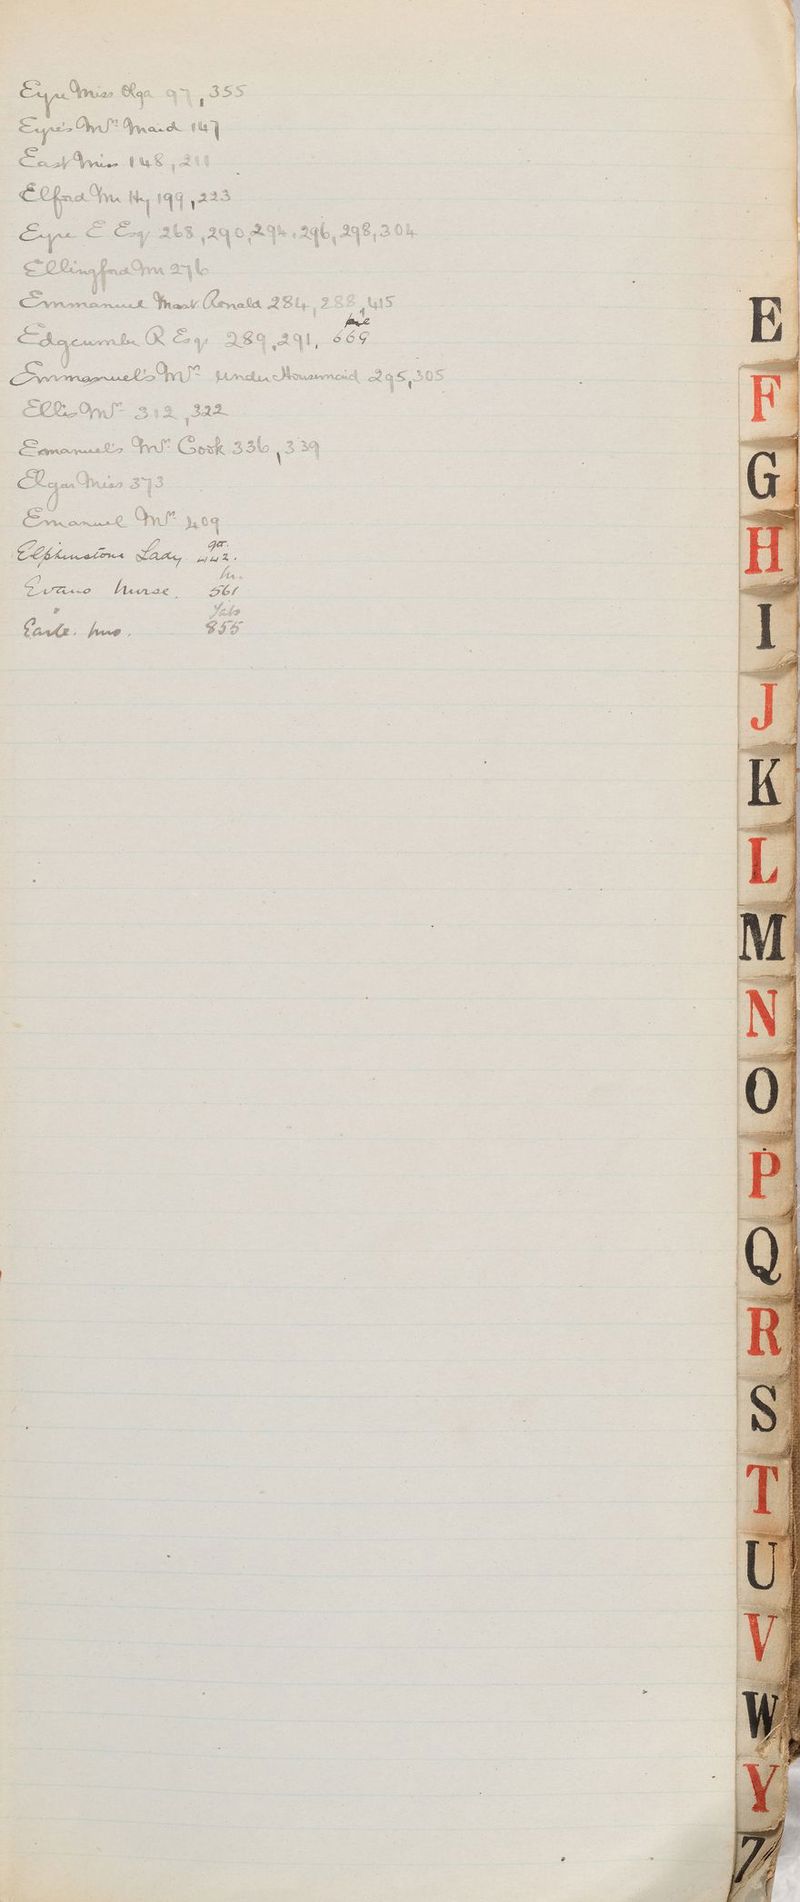 Eyre Miss Olga 97, 355
Eyre's Mrs Maid 147
East Miss 148, 211
Elford Mr Hy 199, 223
Eyre E Esq 268, 290, 294, 296, 298, 304
Ellingford Mr 276
Emmanuel Mast Ronald 284, 288, 415
Edgcumbe R Esqr 289, 291, 669
Emmanuel's Mrs Under Housemaid 295, 305
Ellis Mrs 312, 322
Emanuel's Mrs Cook 336, 339
Elgar Miss 373
Emanuel Mrs 409
Elphinstone Lady 442.
Evans Nurse. 561
Earle. Mrs. 855
E
F
G
H
I
J
K
L
M
N
O
P
Q
R
S
T
U
V
W
Y
Z